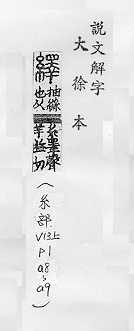 說文解字
大徐本
繹
抽絲
也从
糸睪聲
羊益切
(糸部
V13上
P1
a8、
a9)